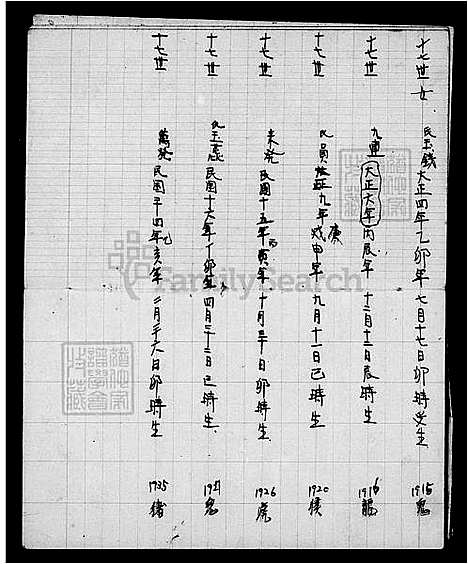 十七世女 氏玉錢 大正四年乙卯年 七月十七日卯時受生 1915 兔
十七世 九重 大正六年丙辰年 十二月十二日辰時生 1916 龍
十七世 氏員 九年戊申年 庚 九月十一日巳時生 1920 猴
十七世 来発 民國十五年丙寅年 十月三十日卯時生 1926 虎
十七世 氏玉 民國十六年丁卯年 四月三十二日巳時生 1927 兔
十七世 萬発 民國二十四年乙亥年 二月二十六日卯時生 1935 豬
FamilySearch